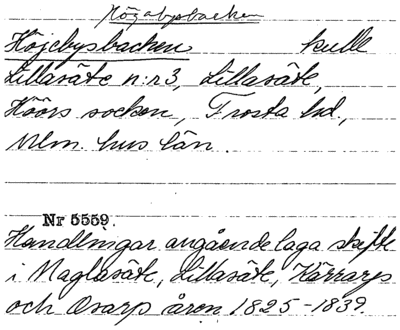 Högabysbacken
Höjebysbacken kulle
Lillasäte n:r 3, Lillasäte,
Höörs socken, Frosta hd,
Mlm. hus län.
Nr 5559.
Handlingar angående laga skifte
i Maglasäte, Lillasäte, Kärrarp
och Orarp åren 1825-1839.